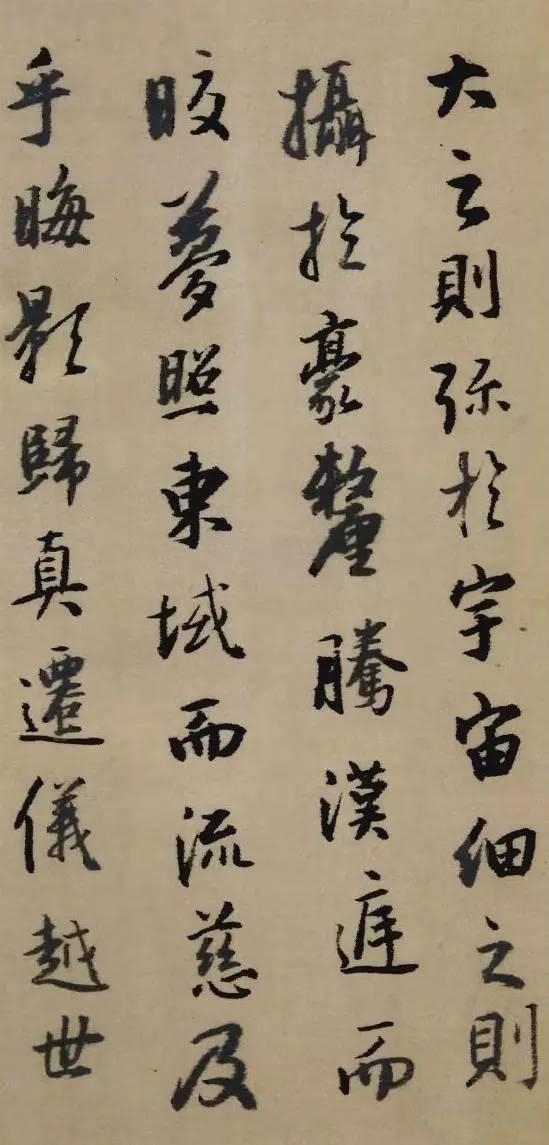 大之則弥於宇宙細之則
攝於豪釐騰漢庭而
皎夢照東域而流慈及
乎晦影歸真遷儀越世